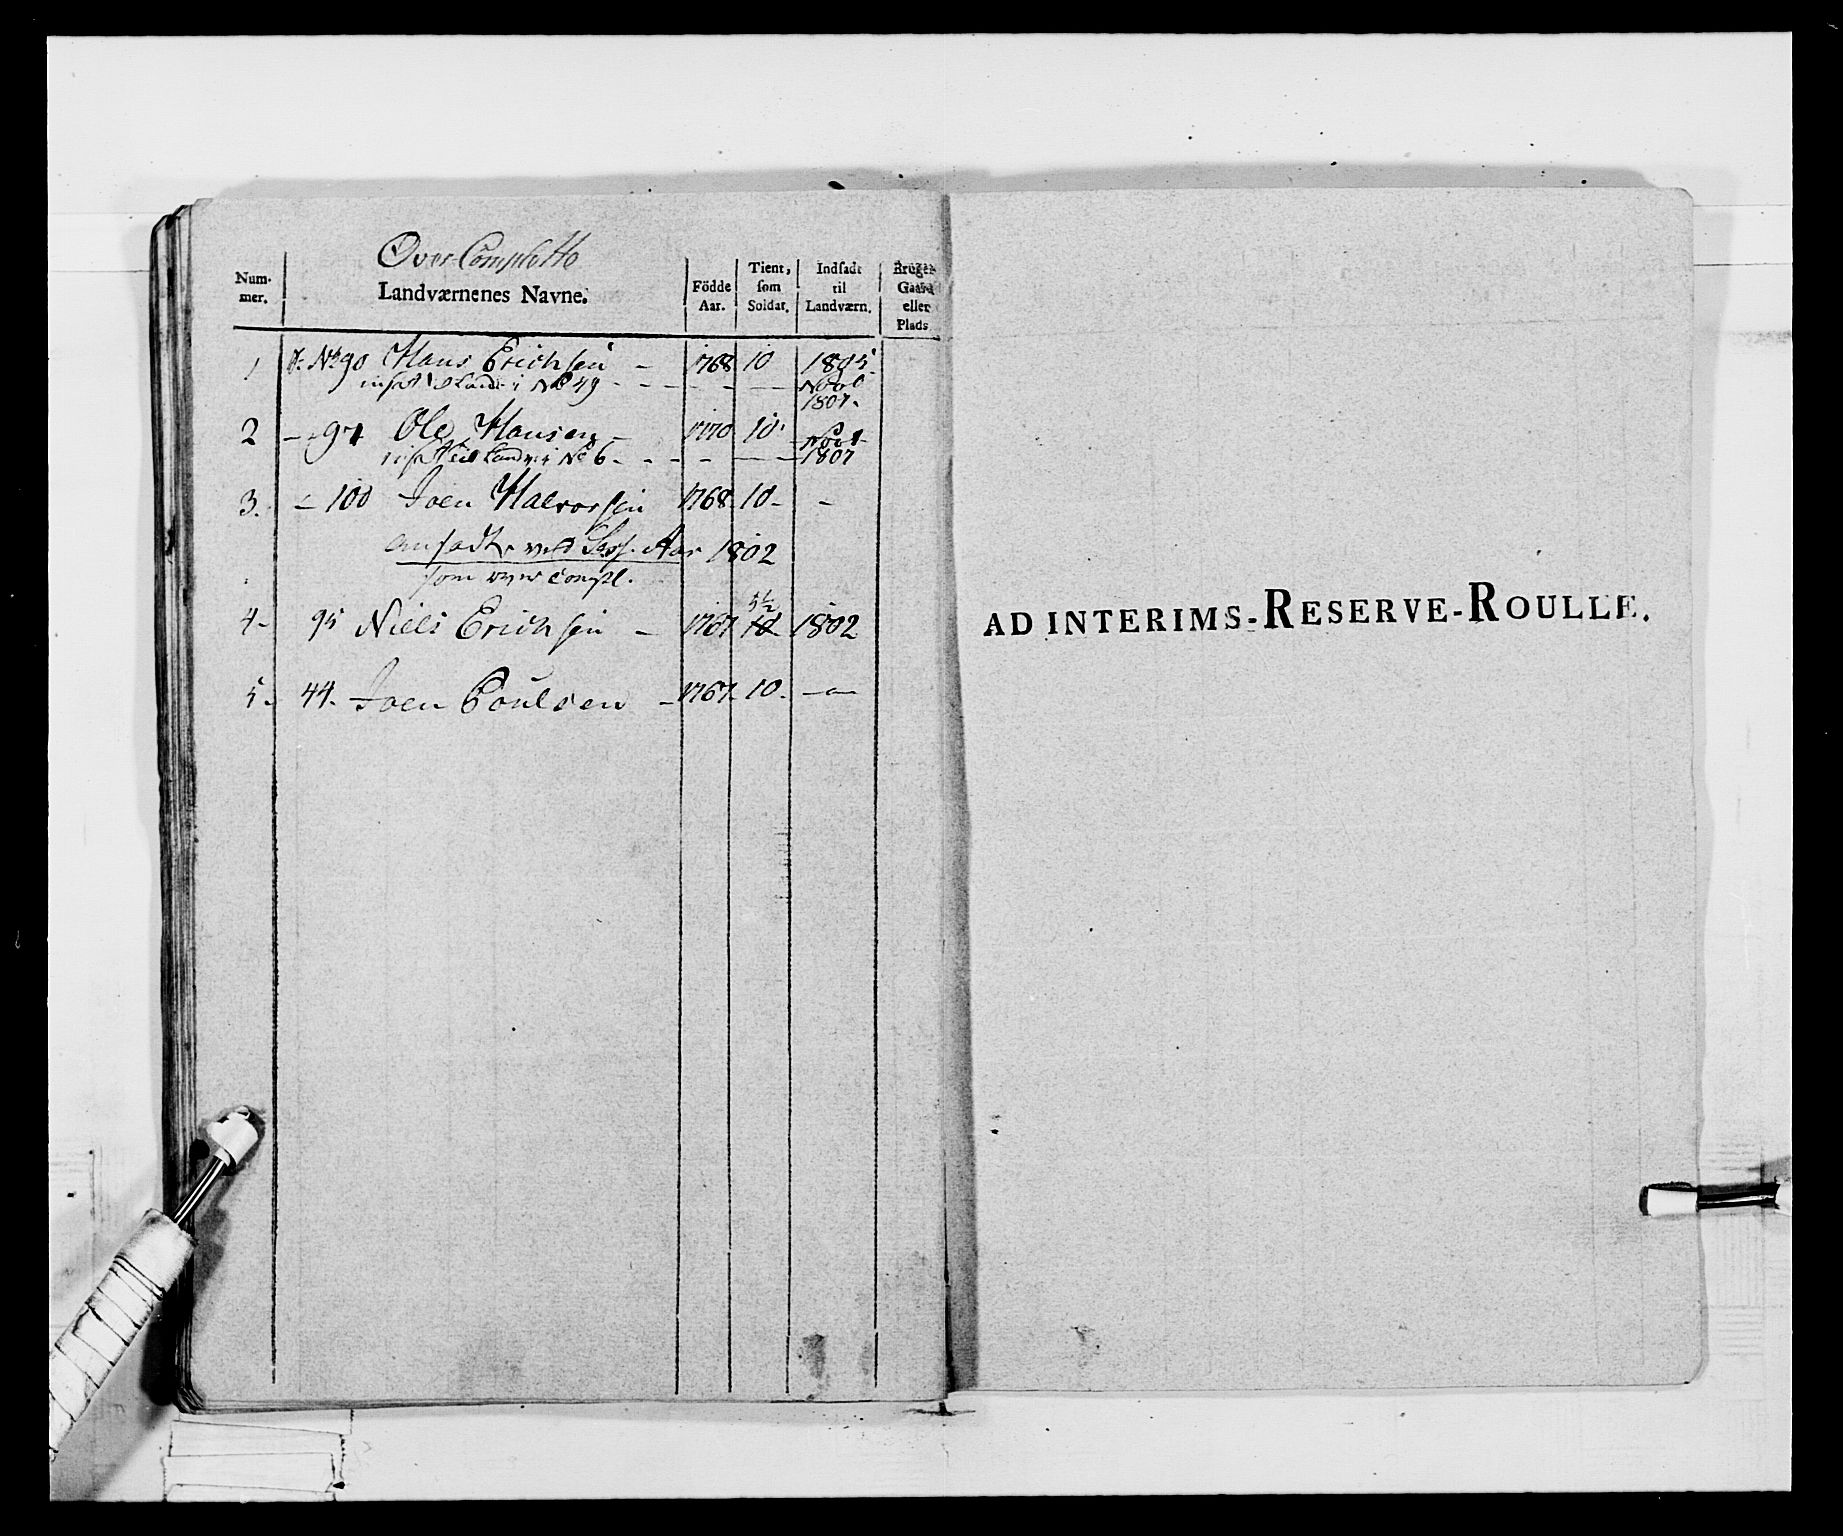 Over Complette
Num- mer. Landværnenes Navne. Födde Aar. Tient, som Soldat. Indsadt til Landværn. Bruger Gaard eller Plads
1 No 90 Hans Erichsen – 1768 10 1805.
No 49 - - - - Novbr 1807.
2 – 97 Ole Hansen – 1770 10 Novbr
No 6 - - - - 1807
3. – 100 Joen Halvorsen 1768. 10 – –
ansadt ved Sess. Aar 1802
som over Compl.
4 – 95 Niels Erichsen – 1767 5½ 10 1802
5. 44. Joen Poulsen – 1767. 10. – " –
AD INTERIMS-RESERVE-ROULLE.